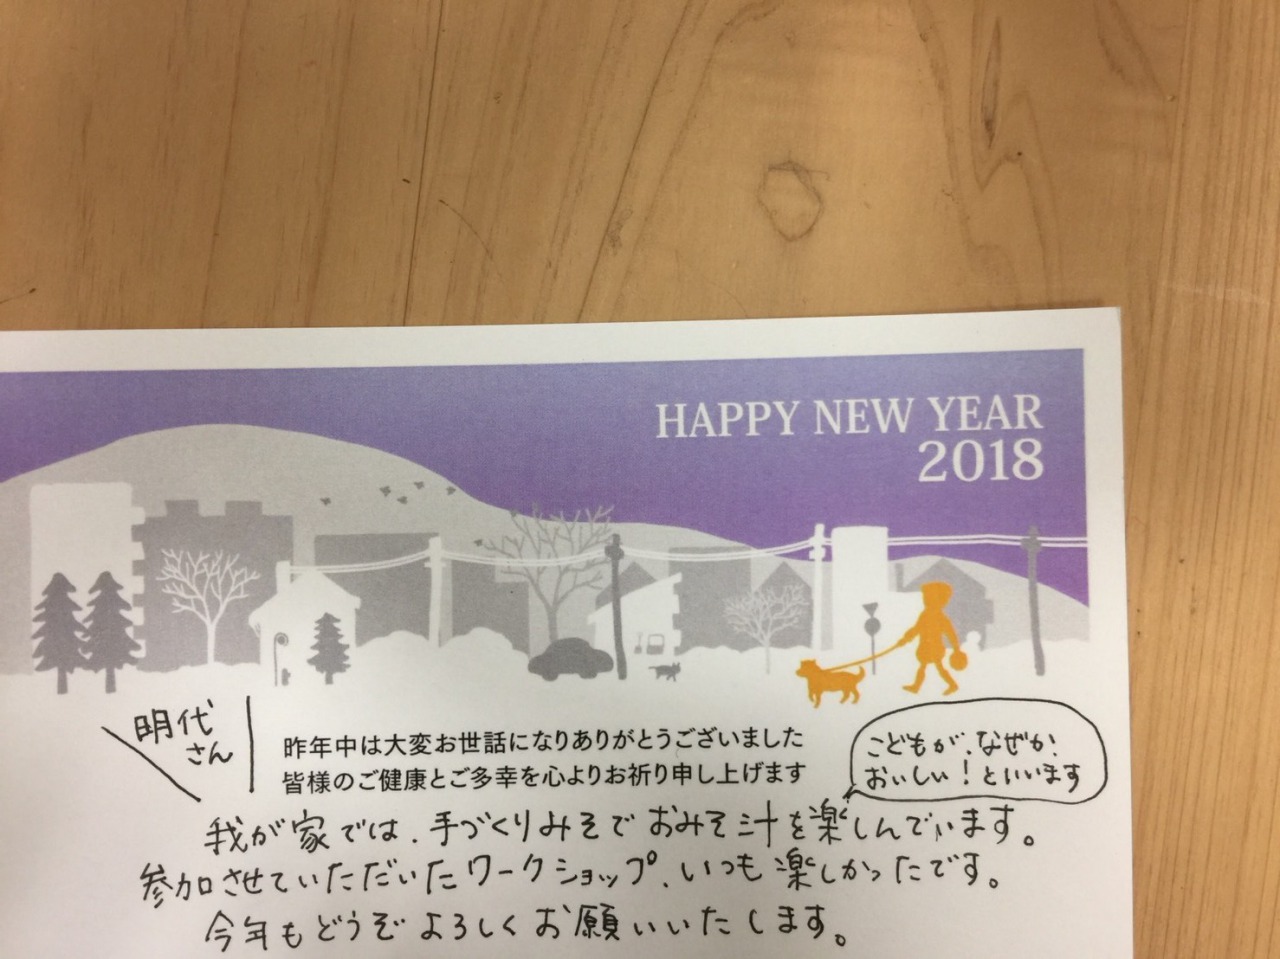 HAPPY NEW YEAR
2018
明代
さん
昨年中は大変お世話になりありがとうございました
皆様のご健康とご多幸を心よりお祈り申し上げます
こどもが、なぜか、
おいしい！といいます
我が家では、手づくりみそでおみそ汁を楽しんでいます。
参加させていただいたワークショップ、いつも楽しかったです。
今年もどうぞよろしくお願いいたします。